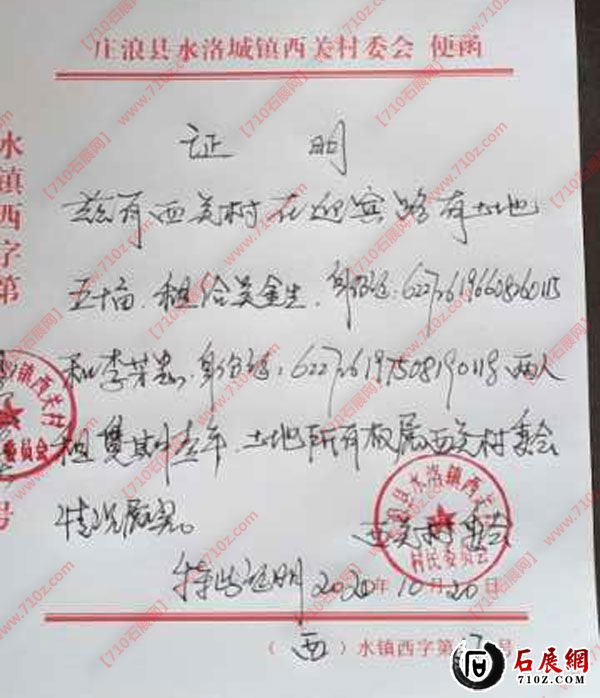 庄浪县水洛城镇西关村委会 便函
证 明
兹有西关村在迎宾路有土地
五十亩.租给吴金生.身份证:
和李芳,身份证:两人
租 期十五年.土地所有权属西关村委会
情况属实。
西关村委会
特此证明 2020年10月20日
(西)水镇西字第 号
水镇西字第 号
庄浪县水洛镇西关村
村民委员会
镇西关村
委员会
【710石展网】www.710z.com
石展網
710Z.COM